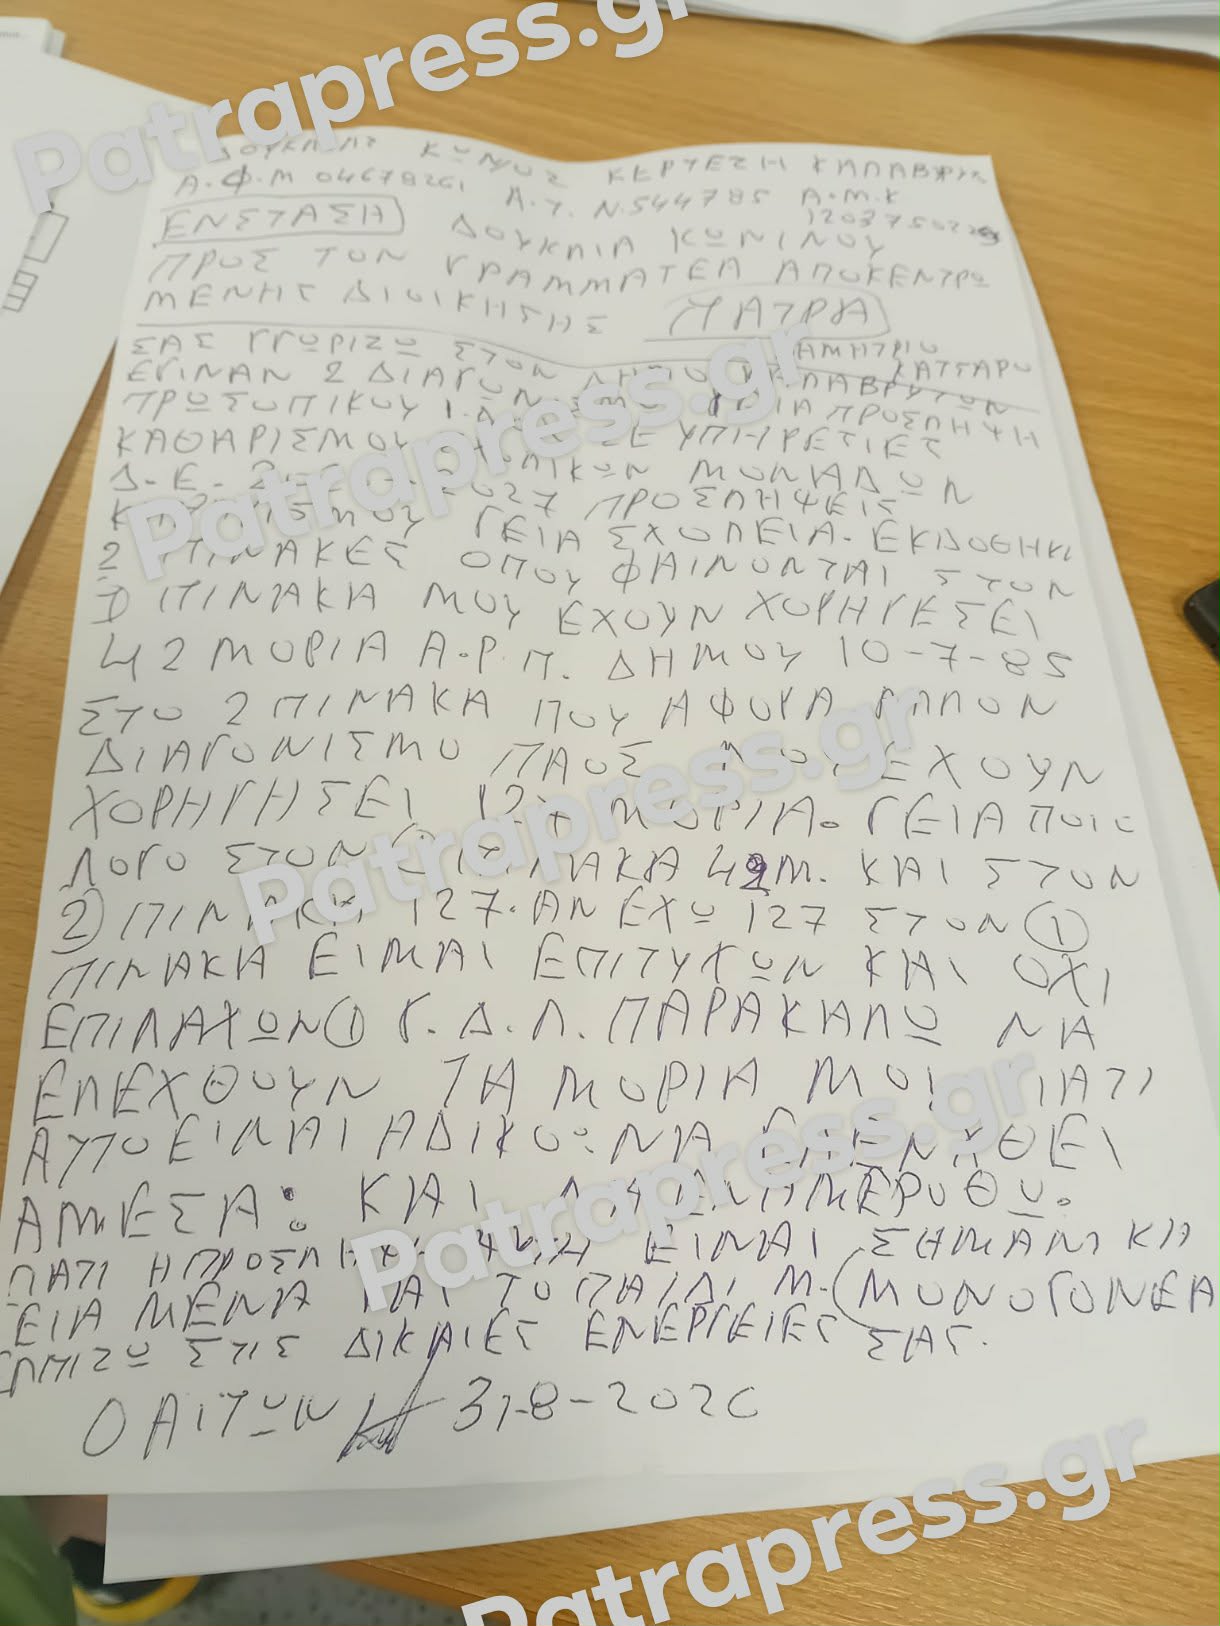 Patrapress.gr
ΚΩΝ/ΟΣ ΚΕΡΠΕΖΗ ΚΑΛΑΒΡΥΤ
Α.Φ.Μ 04678261 Α.Τ. Ν.544785 Α.Μ.Κ
ΕΝΣΤΑΣΗ ΔΟΥΚΛΙΑ ΚΩΝ/ΝΟΥ
ΠΡΟΣ ΤΟΝ ΓΡΑΜΜΑΤΕΑ ΑΠΟΚΕΝΤΡΩ
ΜΕΝΗΣ ΔΙΟΙΚΗΣΗΣ ΠΑΤΡΑ
ΣΑΣ ΓΓΩΡΙΖΩ ΣΤΟΝ ΔΗΜΟ ΚΑΛΑΒΡΥΤΩΝ
ΚΑΤΣΑΡΟ
ΕΓΙΝΑΝ 2 ΔΙΑΓΩΝΙΣΜΟΙ ΓΕΙΑ ΠΡΟΣΛΗΨΗ
ΠΡΩΣΟΠΙΚΟΥ ΣΕ ΥΠΗΡΕΤΙΕΣ
ΚΑΘΑΡΙΣΜΟΥ ΣΧΟΛΙΚΩΝ ΜΟΝΑΔΩΝ
Δ.Ε. 2027 ΠΡΟΣΛΗΨΕΙΣ
ΓΕΙΑ ΣΧΟΛΕΙΑ. ΕΚΔΟΘΗΚΙ
2 ΠΙΝΑΚΕΣ ΟΠΟΥ ΦΑΙΝΟΝΤΑΙ ΣΤΟΝ
1 ΠΙΝΑΚΙΑ ΜΟΥ ΕΧΟΥΝ ΧΟΡΗΓΕΣΕΙ
42 ΜΟΡΙΑ Α.Ρ.Π. ΔΗΜΟΥ 10-7-85
ΣΤΟ 2 ΠΙΝΑΚΑ ΠΟΥ ΑΦΟΡΑ ΑΛΛΟΝ
ΔΙΑΓΟΝΙΣΜΟ ΠΑΟΣ ΜΟΥ ΕΧΟΥΝ
ΧΟΡΗΓΗΣΕΙ 127 ΜΟΡΙΑ. ΓΕΙΑ ΠΟΙΟ
ΛΟΓΟ ΣΤΟΝ 1 ΠΙΝΑΚΑ 42Μ. ΚΑΙ ΣΤΟΝ
2 ΠΙΝΑΚΑ 127. ΑΝ ΕΧΩ 127 ΣΤΟΝ 1
ΠΙΝΑΚΑ ΕΙΜΑΙ ΕΠΙΤΥΧΩΝ ΚΑΙ ΟΧΙ
ΕΠΙΛΑΧΩΝ 1 Γ.Δ.Λ. ΠΑΡΑΚΑΛΩ ΝΑ
ΕΛΕΧΘΟΥΝ ΤΑ ΜΟΡΙΑ ΜΟΥ ΓΙΑΤΙ
ΑΥΤΟ ΕΙΝΑΙ ΑΔΙΚΟ: ΝΑ ΕΛΕΝΧΘΕΙ
ΑΜΕΣΑ: ΚΑΙ ΝΑ ΕΝΗΜΕΡΟΘΩ.
ΓΙΑΤΙ Η ΠΡΟΣΛΗΨΗ ΕΙΝΑΙ ΣΗΜΑΝΤΙΚΗ
ΓΕΙΑ ΜΕΝΑ ΚΑΙ ΤΟ ΠΑΙΔΙ Μ. (ΜΟΝΟΓΟΝΕΑ
ΕΛΠΙΖΩ ΣΤΙΣ ΔΙΚΑΙΕΣ ΕΝΕΡΓΕΙΕΣ ΣΑΣ.
Ο ΑΙΤΩΝ 31-8-202
Patrapress.gr
Patrapress.gr
Patrapress.gr
Patrapress.gr
Patrapress.gr
Patrapress.gr